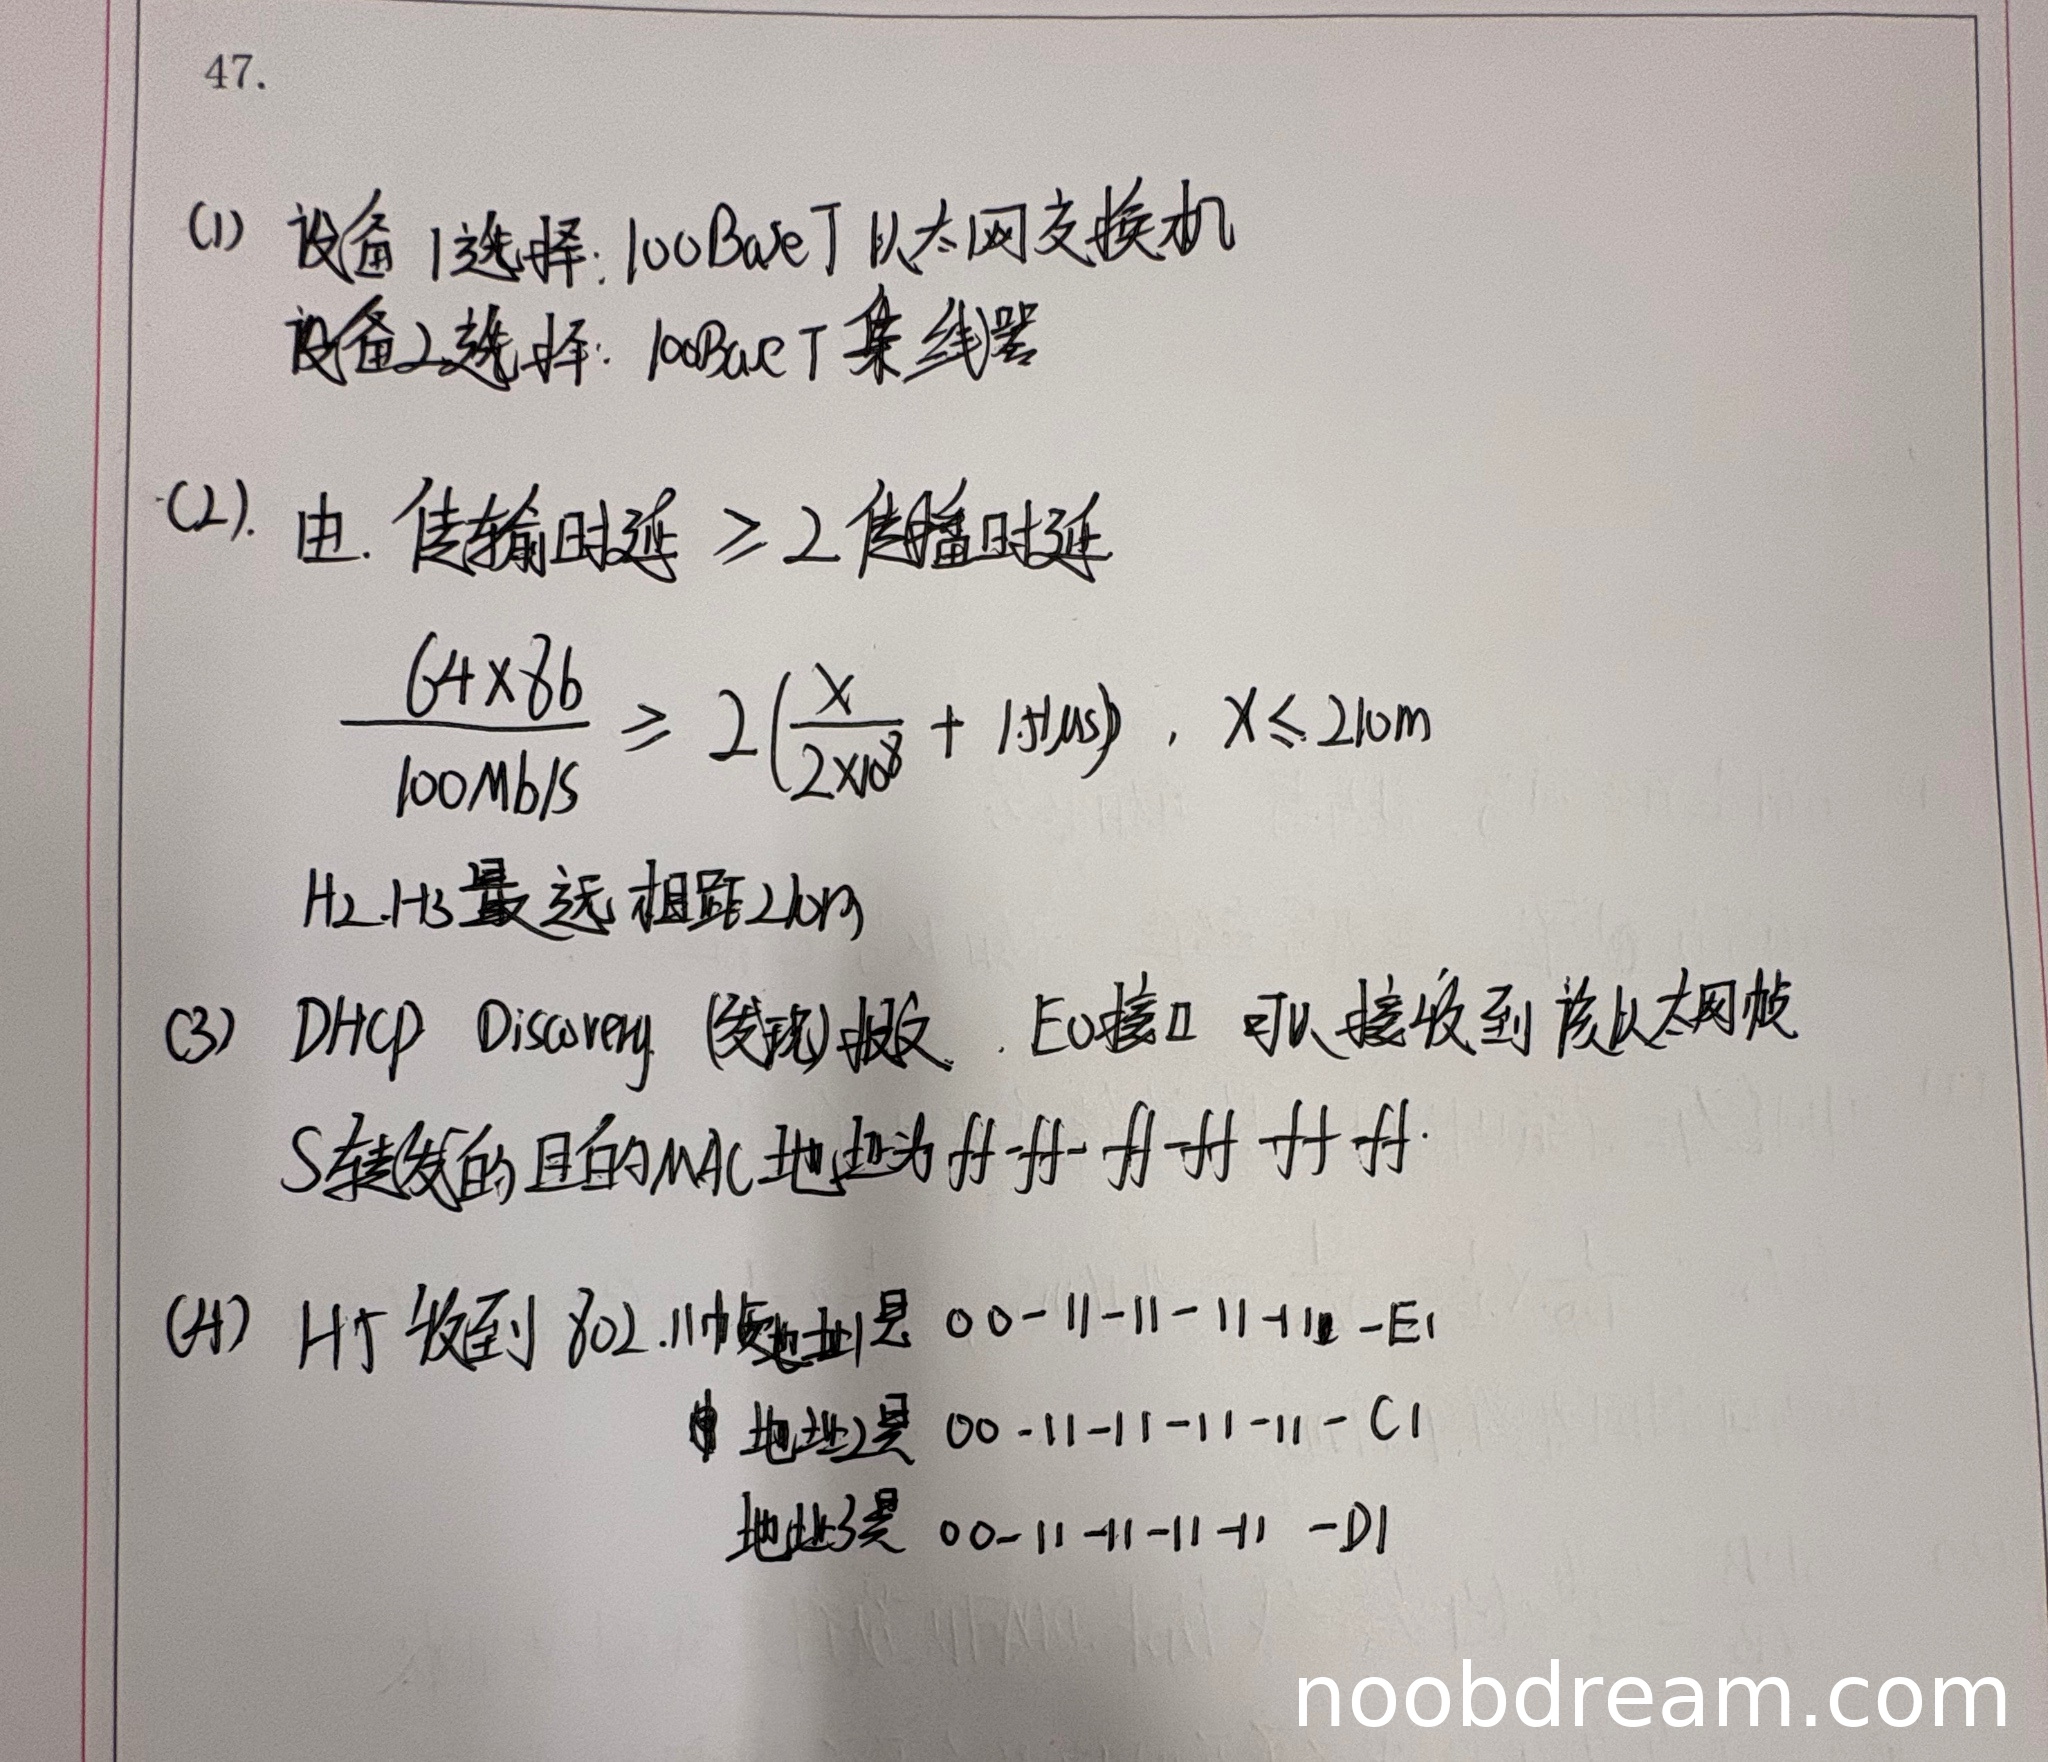 47.
(1) 设备1选择: 100BaseT 以太网交换机
设备2选择: 100BaseT 集线器
(2). 由. 传输时延 ≥ 2传播时延
64×8b / 100Mb/s ≥ 2(x / 2×10^8 + 1.51μs), x ≤ 210m
H2.H3最远相距210m
(3) DHCP Discovery (发现)报文. E0接口 可以接收到该以太网帧
S转发的目的MAC地址为 ff-ff-ff-ff-ff-ff.
(4) H5收到802.11帧地址1是 00-11-11-11-11-E1
地址2是 00-11-11-11-11-C1
地址3是 00-11-11-11-11-D1
noobdream.com